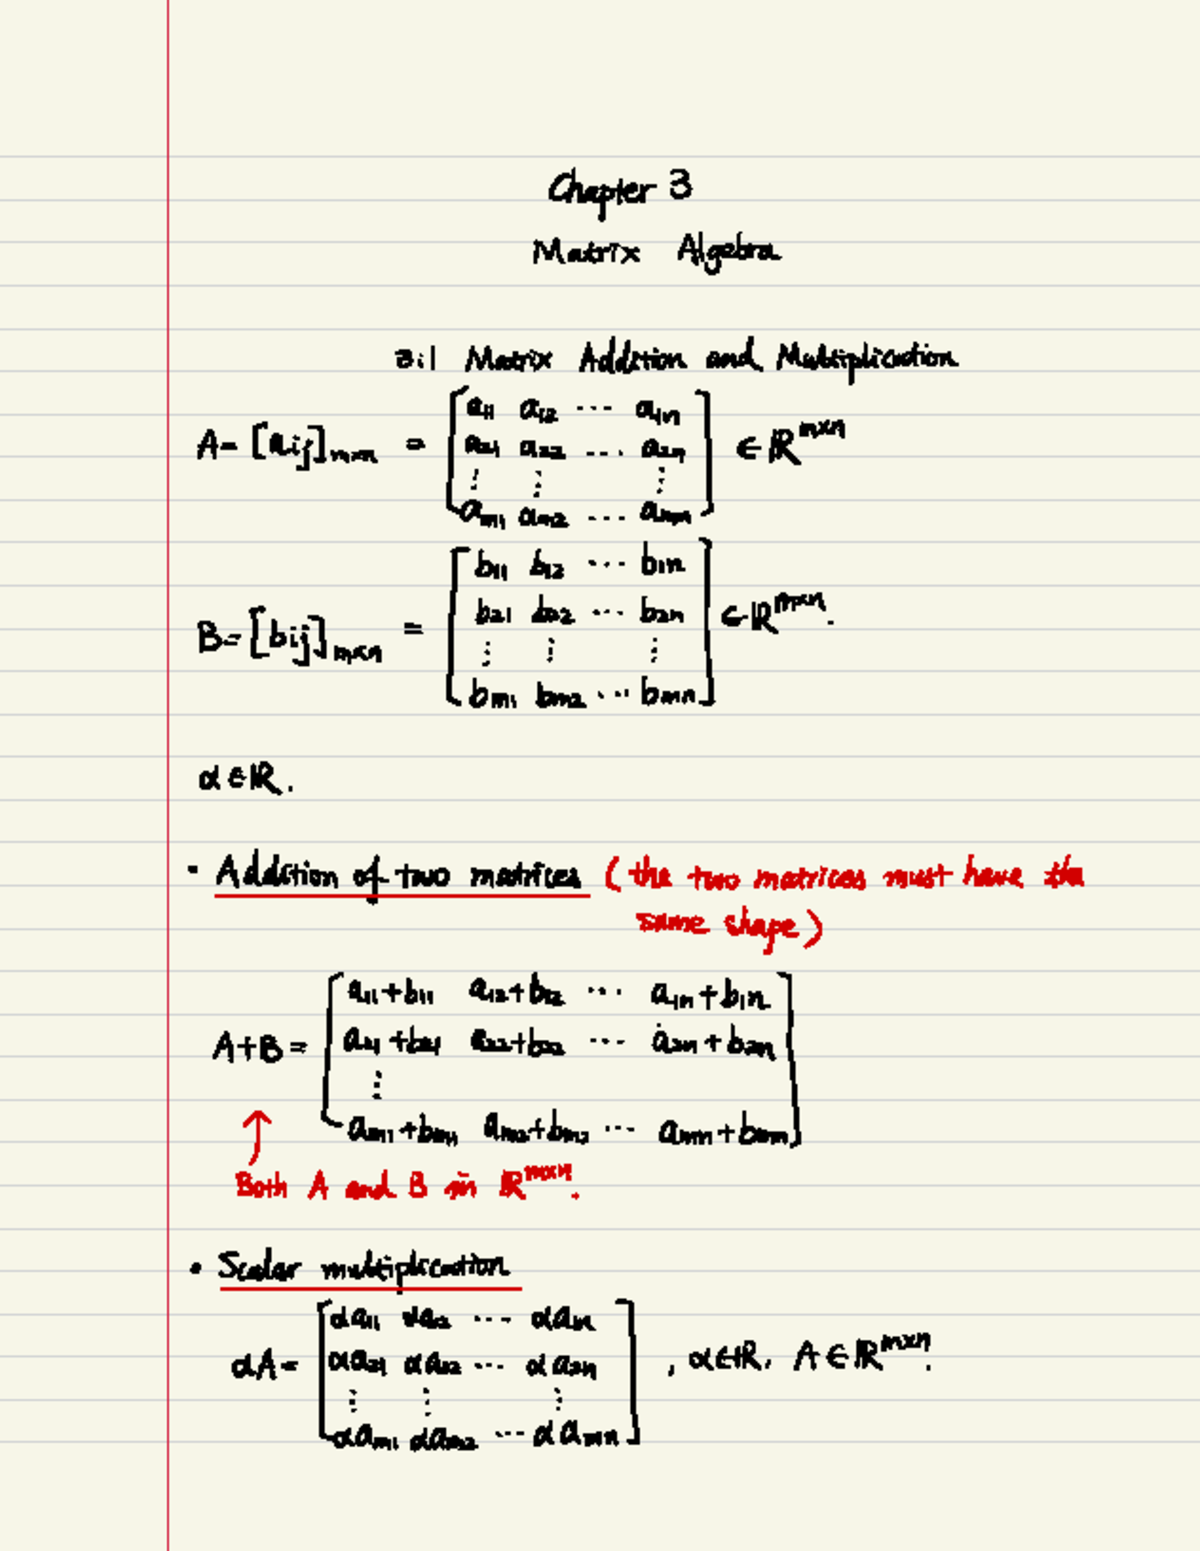 Chapter 3
Matrix Algebra
3.1 Matrix Addition and Multiplication
A = [aij]m×n = [a11 a12 ⋯ a1n
a21 a22 ⋯ a2n
⋮ ⋮ ⋮
am1 am2 ⋯ amn] ∈ ℝ^m×n
B = [bij]m×n = [b11 b12 ⋯ b1n
b21 b22 ⋯ b2n
⋮ ⋮ ⋮
bm1 bm2 ⋯ bmn] ∈ ℝ^m×n.
α ∈ ℝ.
• Addition of two matrices (the two matrices must have the
same shape)
A+B = [a11+b11 a12+b12 ⋯ a1n+b1n
a21+b21 a22+b22 ⋯ a2n+b2n
⋮
am1+bm1 am2+bm2 ⋯ amn+bmn]
↑
Both A and B in ℝ^m×n.
• Scalar multiplication
αA = [αa11 αa12 ⋯ αa1n
αa21 αa22 ⋯ αa2n
⋮ ⋮ ⋮
αam1 αam2 ⋯ αamn] , α∈ℝ, A∈ℝ^m×n.